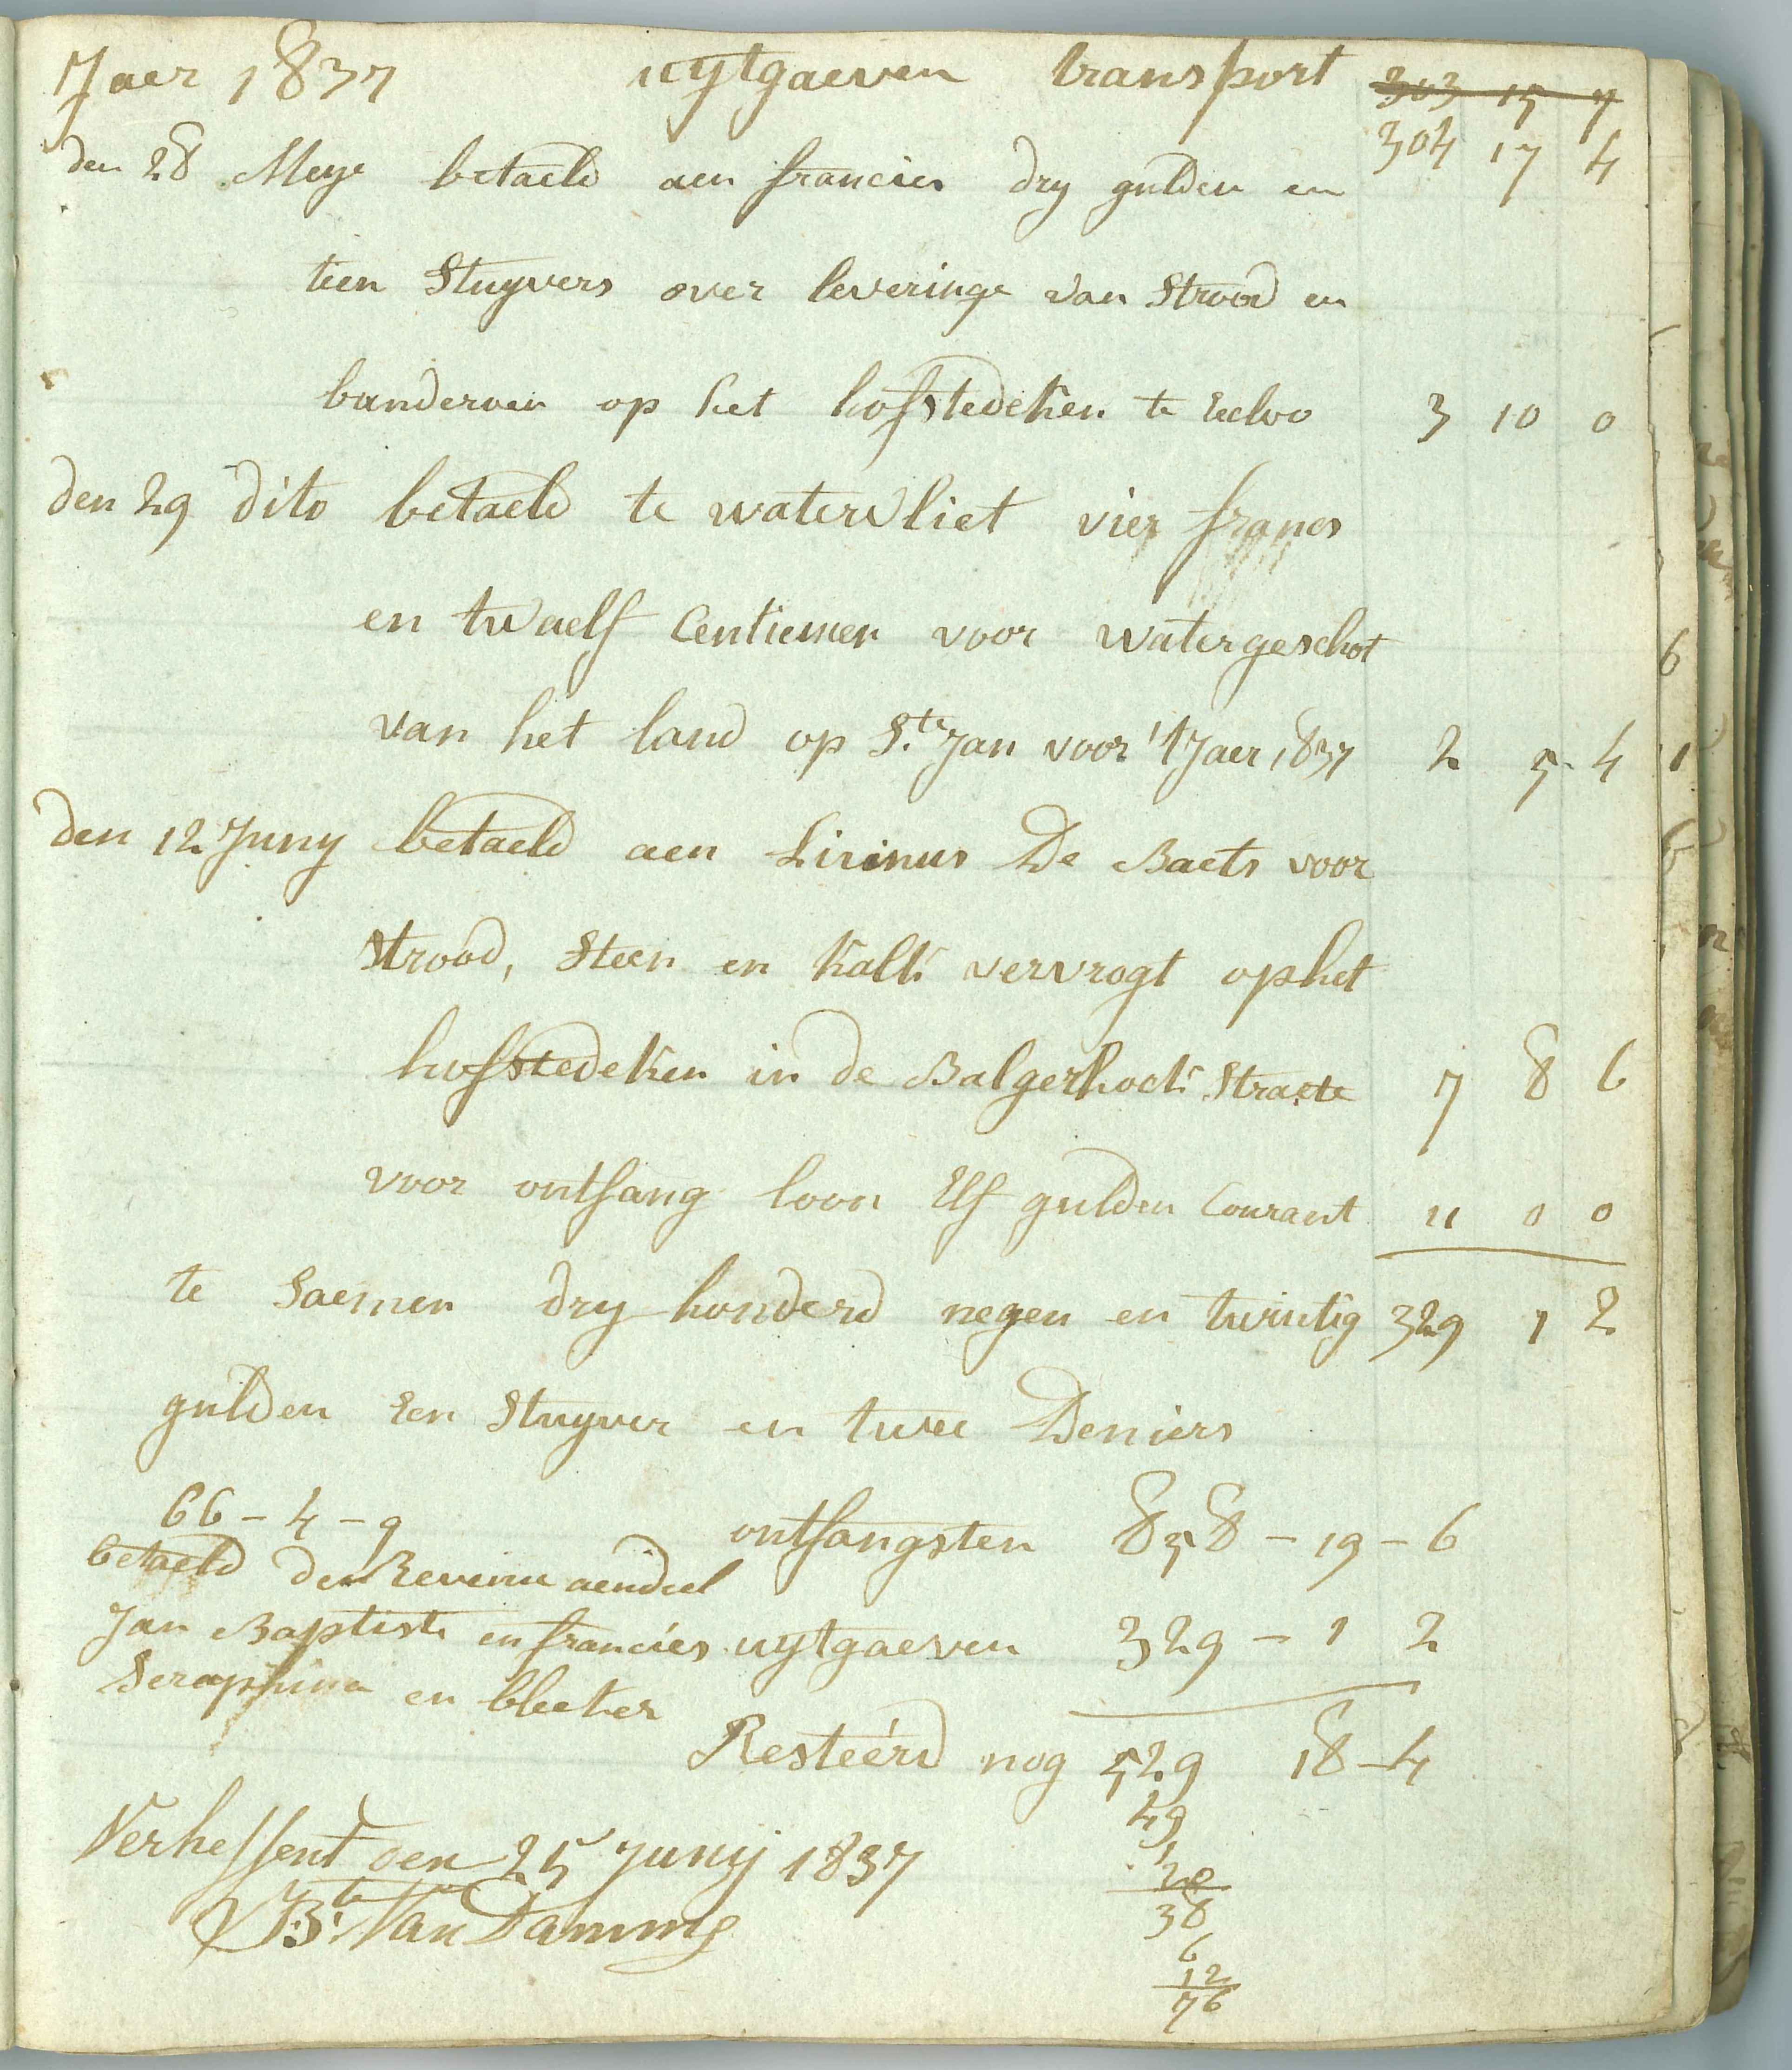 Jaer 1837 uytgaeven transport 303 15 7
304 17 4
den 28 Meye betaeld aen francies dry gulden en
tien Stuyvers over leveringe van Strood en
banderoen op het hofstedeken te Eeloo 3 10 0
den 29 dito betaeld te watervliet vier francs
en twaelf Centiemen voor watergeschot
van het land op Ste Jan voor 't Jaer 1837 2 5 4
den 12 Juny betaeld aen Livinus De Baets voor
strood, Steen en Kalk vervrogt op het
hofstedeken in de Balgerhock Straete 7 8 6
voor ontfang loon Elf gulden Courant 11 0 0
te Saemen dry honderd negen en twintig 329 1 2
gulden Een Stuyver en twee Deniers
66 - 4 - 9
ontfangsten 858 - 19 - 6
betaeld den Revenu aendeel
Jan Baptist en francies uytgaeven 329 - 1 2
Seraphina en bleeker
Resteérd nog 529 18 - 4
49
1
20
38
6
12
76
Verheffent den 25 Junij 1837
J. Bte Van Damme